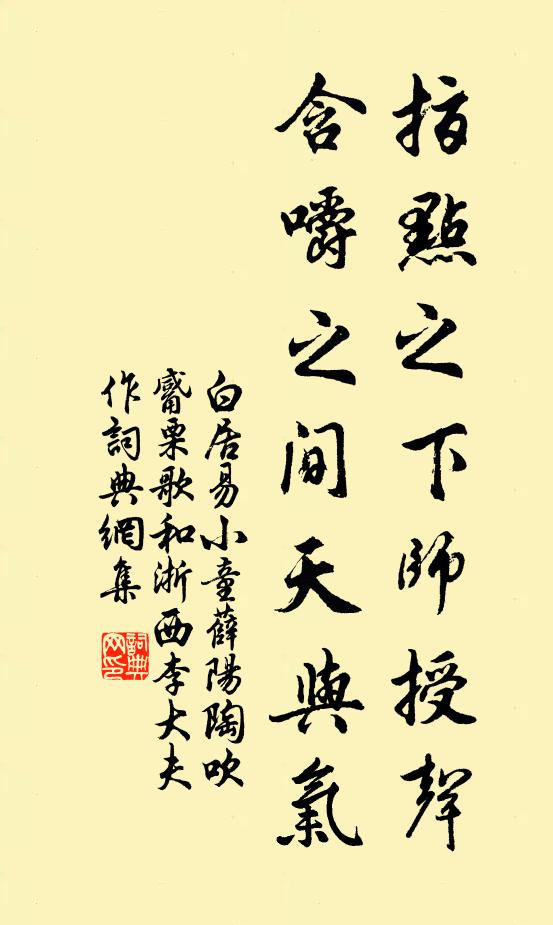 指點之下師授聲
含嚼之間天與氣
白居易小童薛陽陶吹
觱栗歌和浙西李大夫
作詞典網集
詞典網印